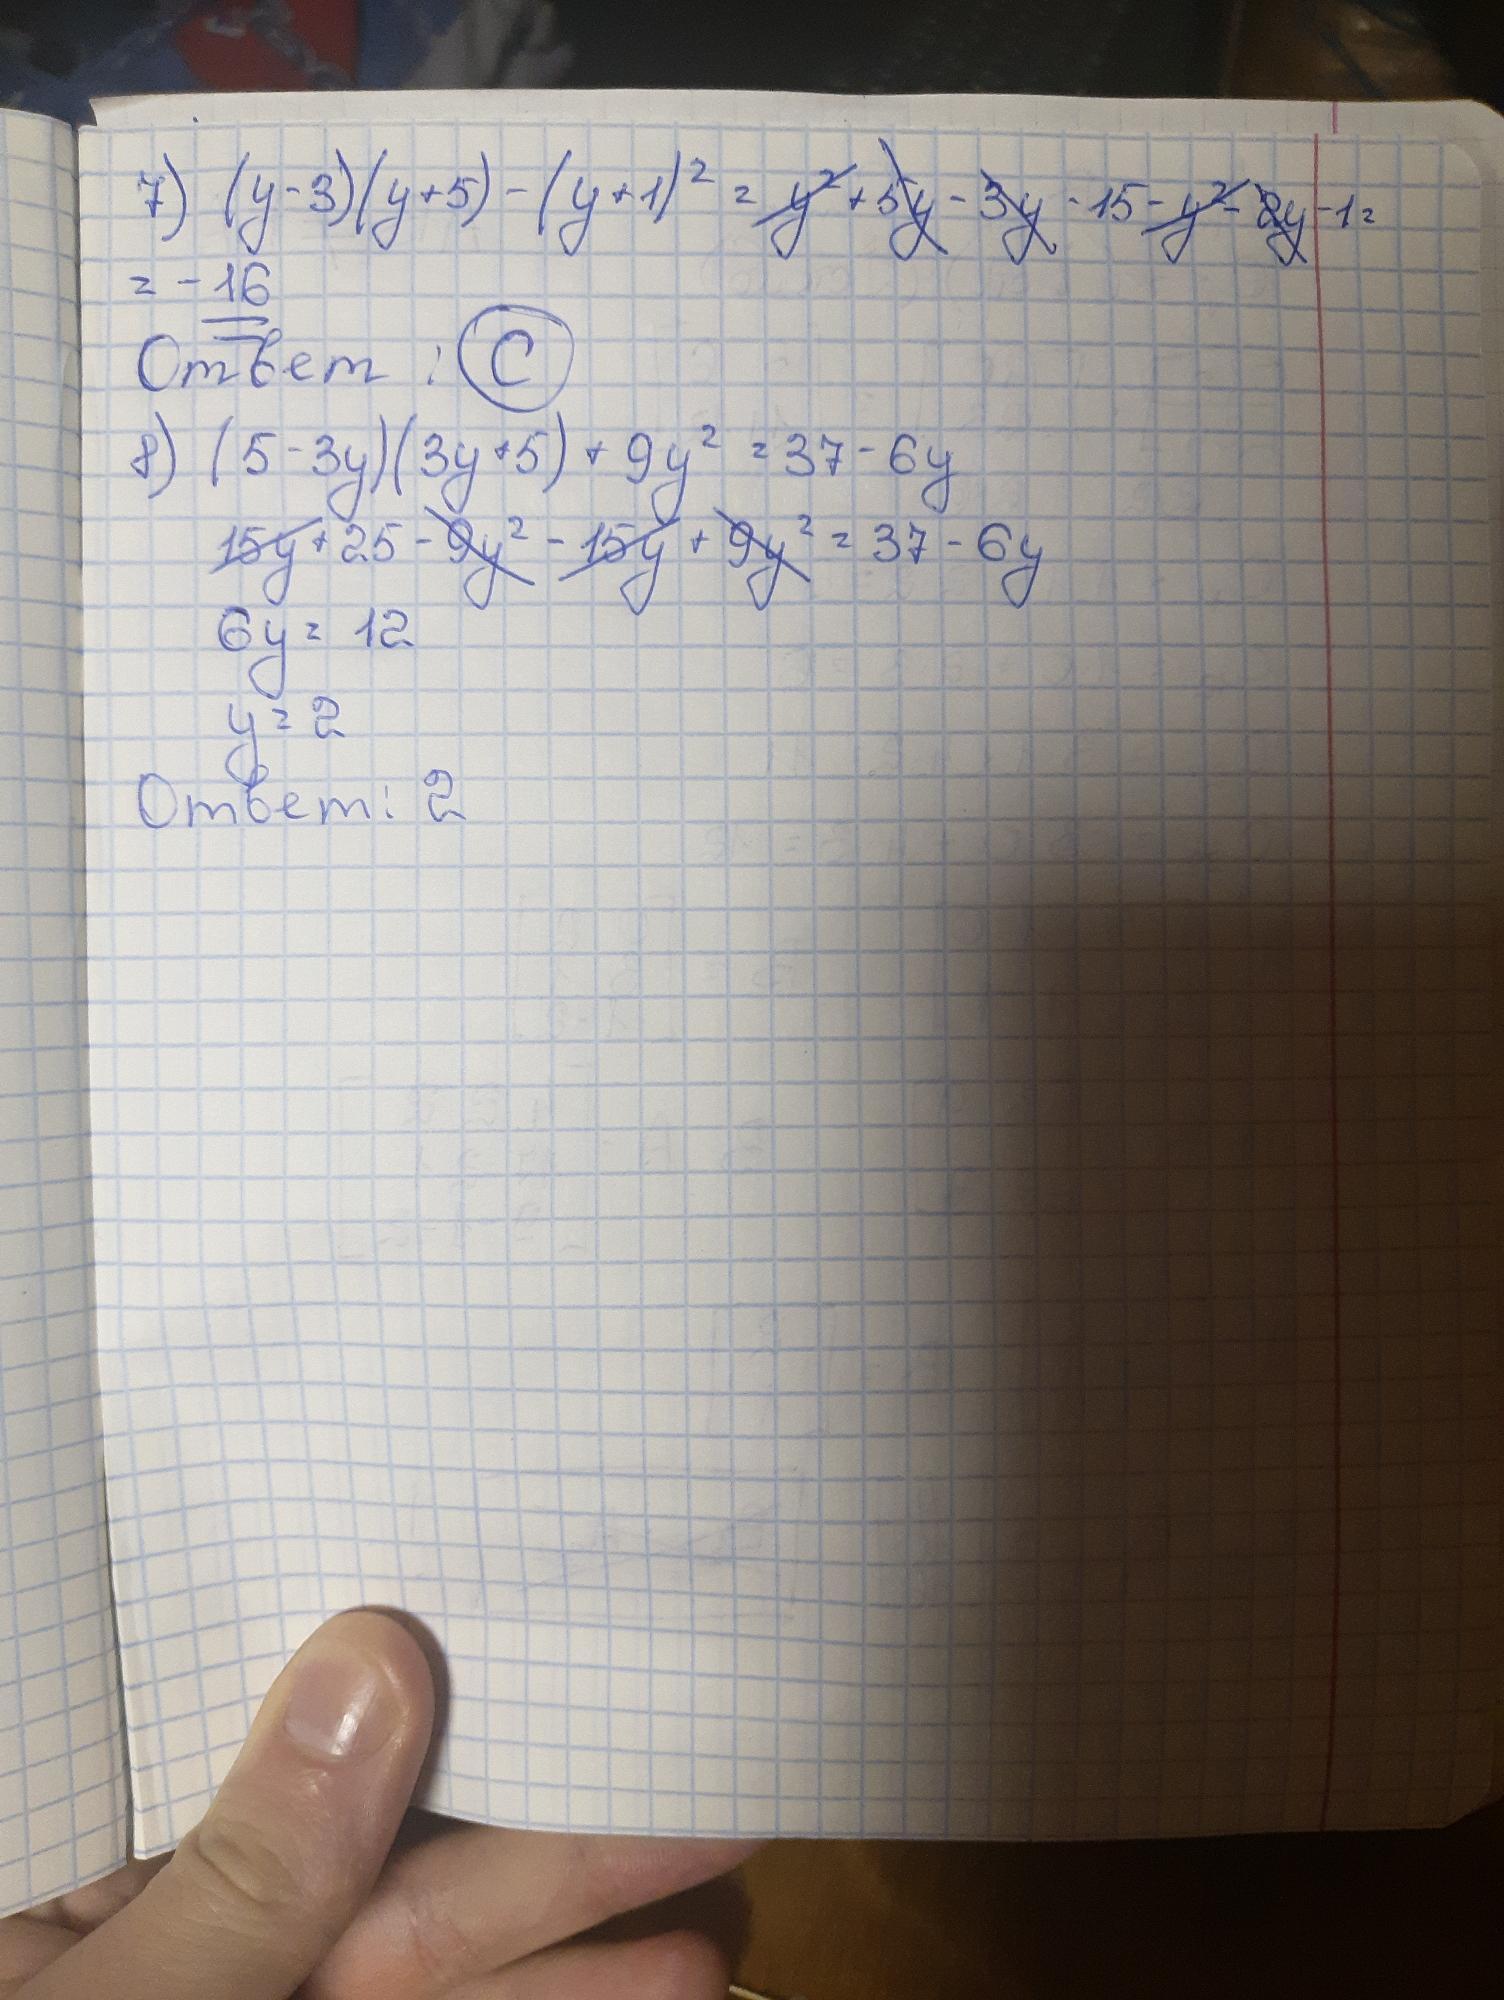 7) (y-3)(y+5) - (y+1)² = y² + 5y - 3y - 15 - y² - 2y - 1 =
= -16
Ответ: C
8) (5-3y)(3y+5) + 9y² = 37 - 6y
15y + 25 - 9y² - 15y + 9y² = 37 - 6y
6y = 12
y = 2
Ответ: 2